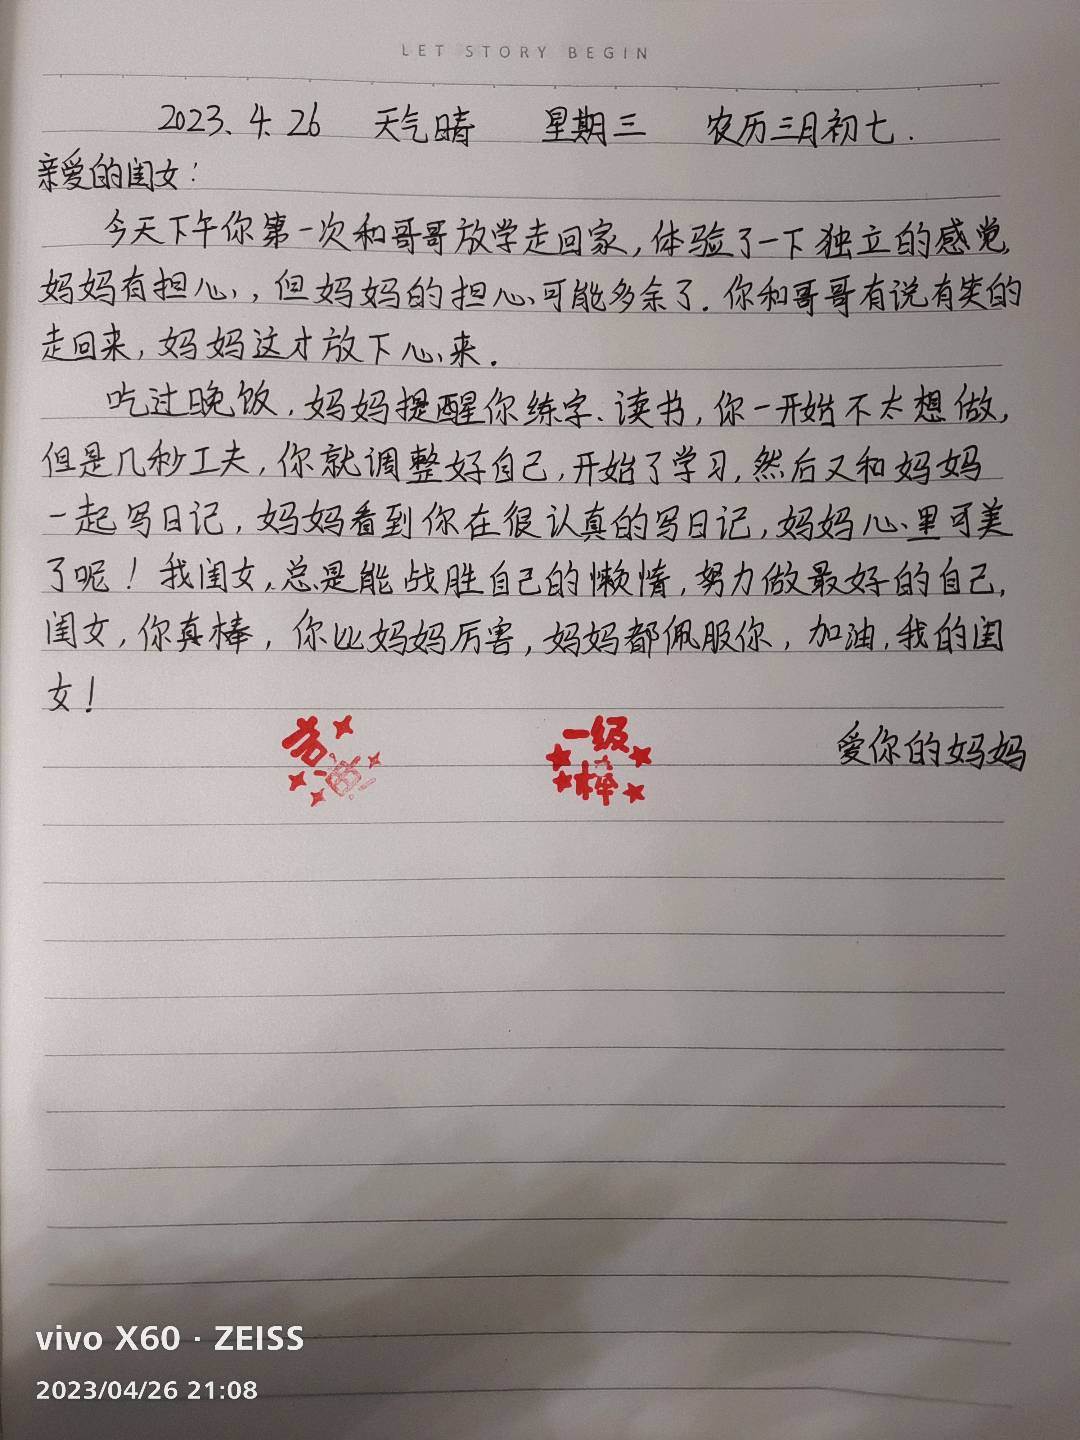 LET STORY BEGIN
2023.4.26 天气晴 星期三 农历三月初七.
亲爱的闺女：
今天下午你第一次和哥哥放学走回家,体验了一下独立的感觉,
妈妈有担心,,但妈妈的担心可能多余了.你和哥哥有说有笑的
走回来,妈妈这才放下心来.
吃过晚饭,妈妈提醒你练字、读书,你一开始不太想做,
但是几秒工夫,你就调整好自己,开始了学习,然后又和妈妈
一起写日记,妈妈看到你在很认真的写日记,妈妈心里可美
了呢！我闺女,总是能战胜自己的懒惰,努力做最好的自己,
闺女,你真棒,你比妈妈厉害,妈妈都佩服你,加油,我的闺
女！
一级
棒
爱你的妈妈
vivo X60 · ZEISS
2023/04/26 21:08